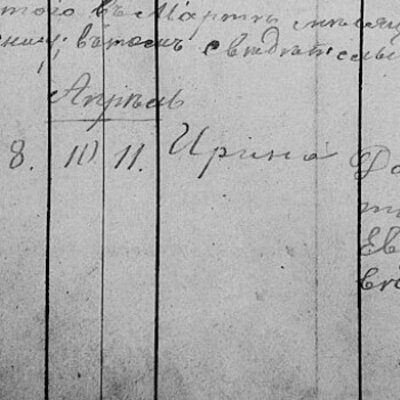 того въ Мартѣ мѣсяц
въ томъ свидѣтель
Апрѣль
8. 10 11. Ирина
Ев